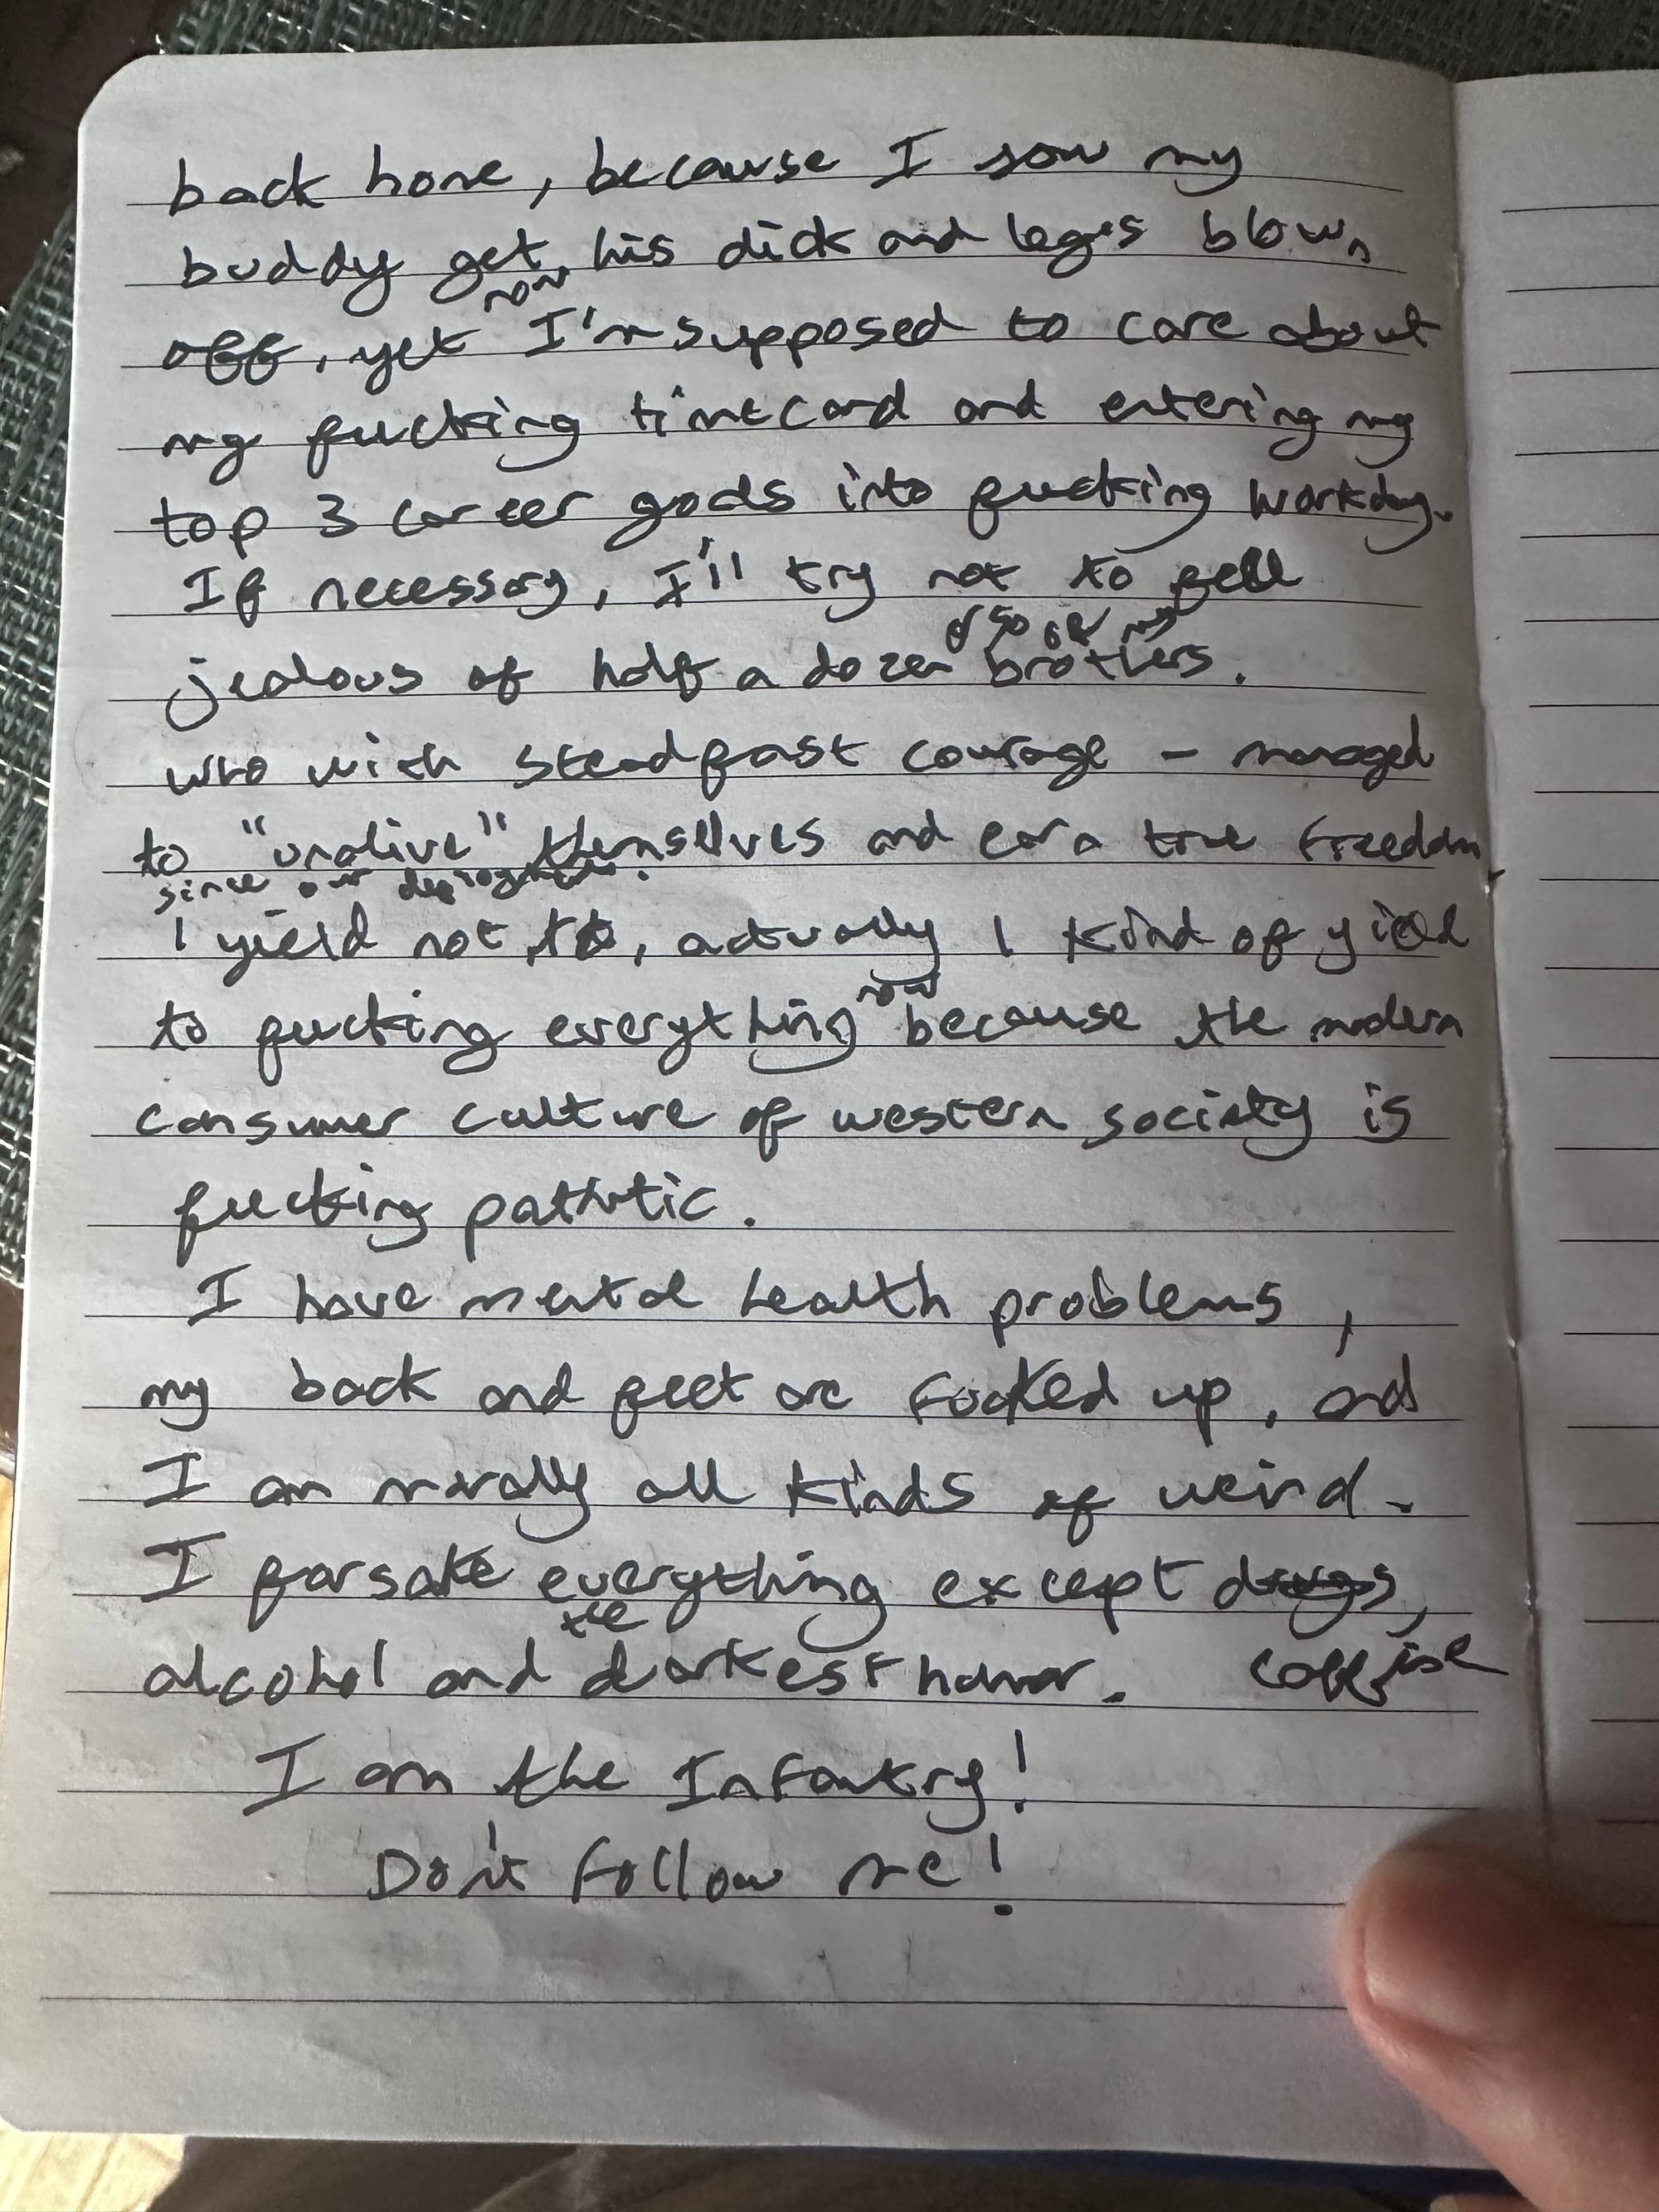 back home, because I saw my
buddy get his dick and legs blown
off, yet now I'm supposed to care about
my fucking timecard and entering my
top 3 career goals into fucking workday.
If necessary, I'll try not to feel
jealous of half a dozen or so of my brothers.
who with steadfast courage - managed
to "unalive" themselves and earn true freedom
since our deployment.
I yield not to, actually I kind of yield
to fucking everything now because the modern
consumer culture of western society is
fucking pathetic.
I have mental health problems,
my back and feet are fucked up, and
I am morally all kinds of weird.
I forsake everything except drugs,
alcohol and the darkest humor. caffeine
I am the Infantry!
Don't follow me!